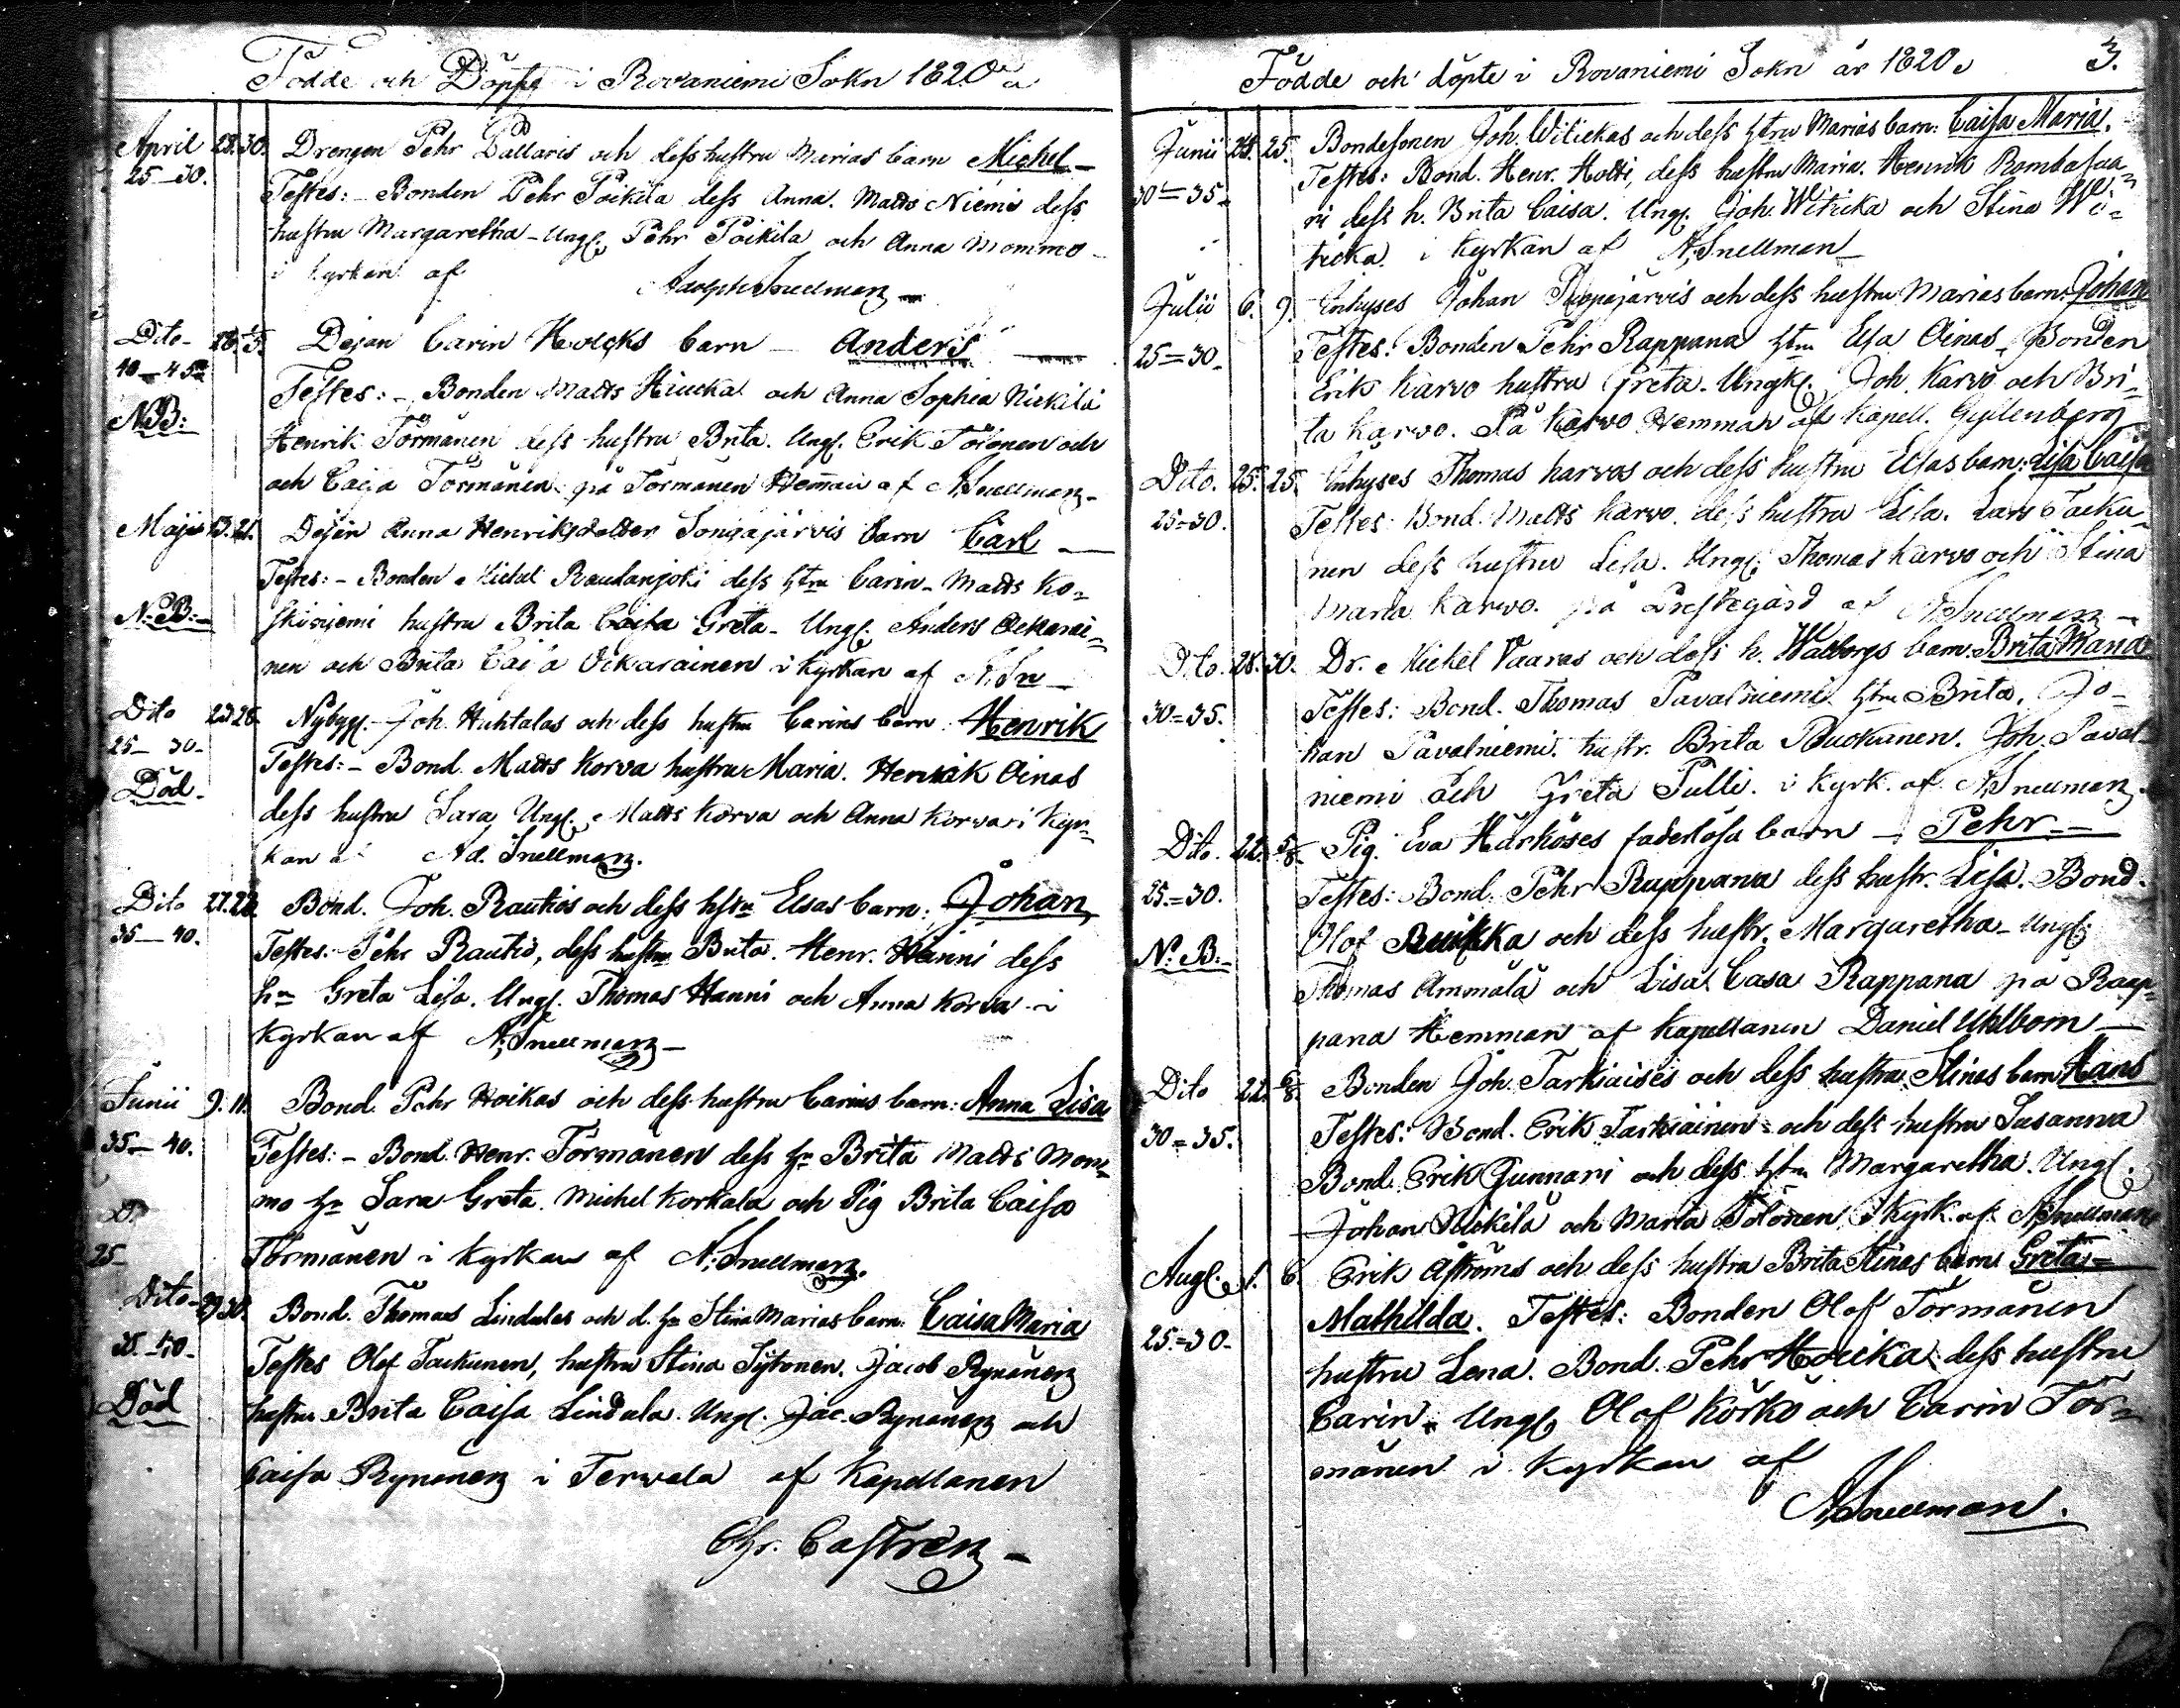 Födde och Döpte i Rovaniemi Sokn 1820
April 28. 30. Drengen Pehr Pallaris och dess hustru Marias barn Michel
25–30. Testes: Bonden Pehr Poikila dess Anna. Matts Niemi dess
hustru Margaretha – Ungl. Pehr Poikila och Anna Mommo
i kyrkan af Adolph Snellman
Dito 28. Dejan Carin barn Anders
40–45 Testes: Bonden Matts och Anna Sophia Nickilä
NB: Henrik Törmänen dess hustru Brita. Ungl. Erik Tölonen och
och Caisa Törmänen på Törmänen Hemman af A. Snellman
Maji 13. 21. Dejan Anna Henriksdotter Songajärvis barn Carl
Testes: – Bonden Michel Raudanjoki dess htru Carin – Matts Ko=
N:B: skiniemi hustru Brita Caisa Greta – Ungl. Anders Ockarai=
nen och Brita Caisa Ockarainen i kyrkan af A. Sn
Dito 28. Nybygg. Joh. Huhtalas och dess hustru Carins barn Henrik
25–30 Testes: – Bond. Matts Korva hustru Maria. Henrik Oinas
Död dess hustru Sara Ungl. Matts Korva och Anna Korva i kyr=
kan af Ad. Snellman.
Dito 27. 28. Bond. Joh. Rautios och dess hstru Elsas barn: Johan
35–40. Testes: Pehr Rautio, dess hustru Brita. Henr. Hanni dess
hu Greta Lisa. Ungl. Thomas Hanni och Anna Korva i
kyrkan af A. Snellman
Junii 9. 11. Bond. Pehr Hoikas och dess hustru Carins barn: Anna Lisa
35–40. Testes: – Bond. Henr. Törmänen dess hu Brita Matts Mom=
mo hu Sara Greta. Michel Korkala och Pig Brita Caisa
25– Törmänen i kyrkan af A. Snellman.
Dito 29 30. Bond. Thomas Lindalas och d. hu Stina Marias barn: Caisa Maria
Testes Olof Tackunen, hustru Stina Sijtonen. Jacob Rynänen
Död hustru Brita Caisa Lindala. Ungl. Jac. Rynänen och
Caisa Rynänen i Terwola af Kapellanen
Chr. Castrén
Födde och döpte i Rovaniemi Sokn år 1820 3.
Junii 25. 25. Bondesonen Joh. Witickas och dess htru Marias barn: Caisa Maria.
30=35. Testes: Bond. Henr. Hotti, dess hustru Maria. Henrik Rombasaa=
ri dess h. Brita Caisa. Ungl. Joh. Witicka och Stina Wi=
ticka i kyrkan af A. Snellman
Julii 6. 9. Inhyses Johan och dess hustru Marias barn: Johan
25=30. Testes: Bonden Pehr Rappana htru Elsa Oinas. Bonden
Erik Karvo hustru Greta. Ungk. Joh. Karvo och Bri=
ta Karvo. På Karvo Hemman af Kapell. Gyllenberg
Dito. 25. 25. Inhyses Thomas Karvos och dess hustru Elsas barn: Lisa Caisa
25=30. Testes: Bond. Matts Karvo dess hustru Lisa. Lars Tacku=
nen dess hustru Lisa. Ungl. Thomas Karvo och Stina
Maria Karvo. på Prestegård af A. Snellman
Dito. 28. 30. Dr. Michel Vaaras och dess h. Walborgs barn. Brita Maria
30=35. Testes: Bond. Thomas Pavalniemi htru Brita. Jo=
han Pavalniemi hustr. Brita Ruokanen. Joh. Paval=
niemi och Greta Pulli. i kyrk. af A. Snellman.
Dito. 22. Pig. Eva Härkösés faderlösa barn – Pehr
25=30. Testes: Bond. Pehr Rappana dess hustr. Lisa. Bond.
N:B: Olof och dess hustr. Margaretha – Ungl.
Thomas Ammälä och Lisa Casa Rappana på Rap=
pana Hemman af Kapellanen Daniel Uhlbom
Dito 22. Bonden Joh. Tarkiaises och dess hustru Stinas barn Hans
30=35. Testes: Bond. Erik Tarkiainen och dess hustru Susanna
Bond. Erik Gunnari och dess htru Margaretha. Ungl.
Johan Nickilä och Maria Tölönen i kyrk. af A. Snellman
Aug. 1. 6. Erik Åströms och dess hustru Brita Stinas barn Greta=
25=30. Mathilda. Testes: Bonden Olof Törmänen
hustru Lena. Bond. Pehr Hoicka dess hustru
Carin. Ungl. Olof Körkö och Carin Tör=
mänen i kyrkan af
A. Snellman.